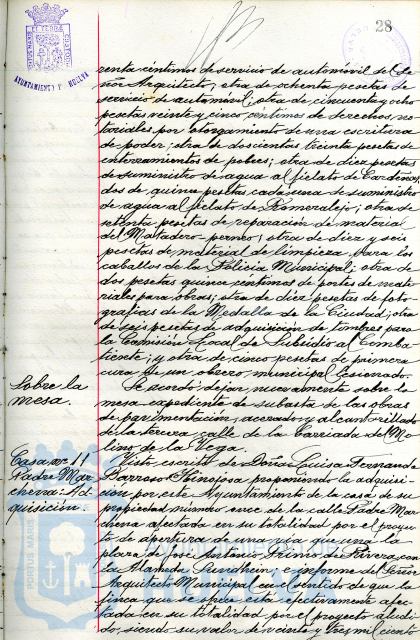 28
AYUNTAMIENTO DE HUELVA
renta céntimos de servicio de automóvil del Se-
ñor Arquitecto; otra de ochenta pesetas de
servicio de automóvil; otra de cincuenta y ocho
pesetas veinte y cinco céntimos de derechos no-
tariales por otorgamiento de una escritura
de poder; otra de doscientas treinta pesetas de
enterramientos de pobres; otra de diez pesetas
de suministro de agua al fielato de Cardeñas,
dos de quince pesetas cada una de suministro
de agua al fielato de Romeralejo; otra de
setenta pesetas de reparación de material
del Matadero-perneo; otra de diez y seis
pesetas de material de limpieza para los
caballos de la Policia Municipal; otra de
dos pesetas quince centimos de portes de mate-
riales para obras; otra de diez pesetas de foto-
grafias de la Medalla de la Ciudad; otra
de seis pesetas de adquisición de timbres para
la Comisión Local de Subsidio al Comba-
tiente; y otra de cinco pesetas de primera
cura de un obrero municipal lesionado.
Sobre la
mesa.
Se acordó dejar nuevamente sobre la
mesa expediente de subasta de las obras
de pavimentación, acerado y alcantarillado
de la tercera calle de la Barriada de Mo-
lino de la Vega.
Casa nº 11
Padre Mar-
chena: Ad-
quisición.
Visto escrito de Doña Luisa Fernanda
Barroso Hinojosa proponiendo la adquisi-
ción por este Ayuntamiento de la casa de su
propiedad número once de la calle Padre Mar-
chena afectada en su totalidad por el proyec-
to de apertura de una via que una la
plaza de José Antonio Primo de Rivera con
la Alameda Sundheim e informe del Señor
Arquitecto Municipal en el sentido de que la
finca que se expresa está efectivamente afec-
tada en su totalidad por el proyecto aludi-
do, siendo su valor de veintes tres mil cuatro
PORTUS MARIS